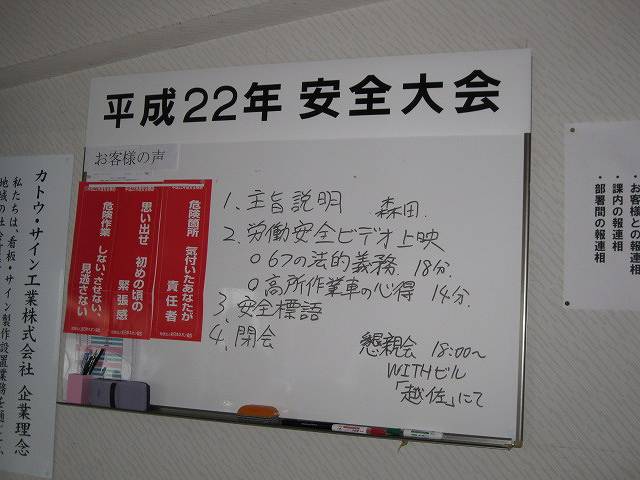 平成22年 安全大会
お客様の声
危険箇所 気付いたあなたが
責任者
思い出せ 初めの頃の
緊張感
危険作業 しない、させない、
見逃さない
1、主旨説明 森田
2、労働安全ビデオ上映
○ 6つの法的義務 18分.
○ 高所作業車の心得 14分.
3、安全標語
4、閉会
懇親会 18:00～
WITHビル
「越佐」にて
カトウ・サイン工業株式会社 企業理念
私たちは、看板・サイン製作設置業務を通じ
・お客様との報連相
・課内の報連相
・部署間の報連相